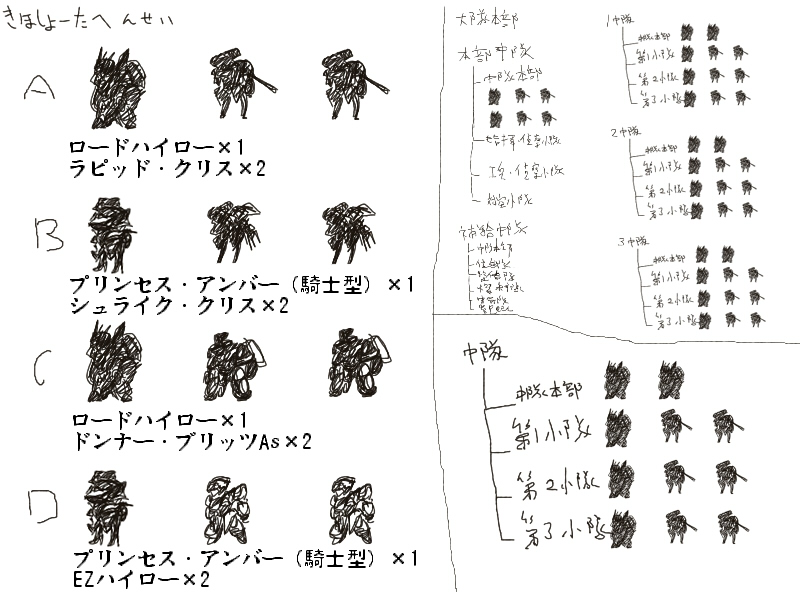 きほしょーたへんせい
A
ロードハイロー×1
ラピッド・クリス×2
B
プリンセス・アンバー（騎士型）×1
シュライク・クリス×2
C
ロードハイロー×1
ドンナー・ブリッツAs×2
D
プリンセス・アンバー（騎士型）×1
EZハイロー×2
大隊本部
本部中隊
中隊本部
補給中隊
1中隊
中隊本部
第1小隊
第2小隊
第3小隊
2中隊
中隊本部
第1小隊
第2小隊
第3小隊
3中隊
中隊本部
第1小隊
第2小隊
第3小隊
中隊
中隊本部
第1小隊
第2小隊
第3小隊